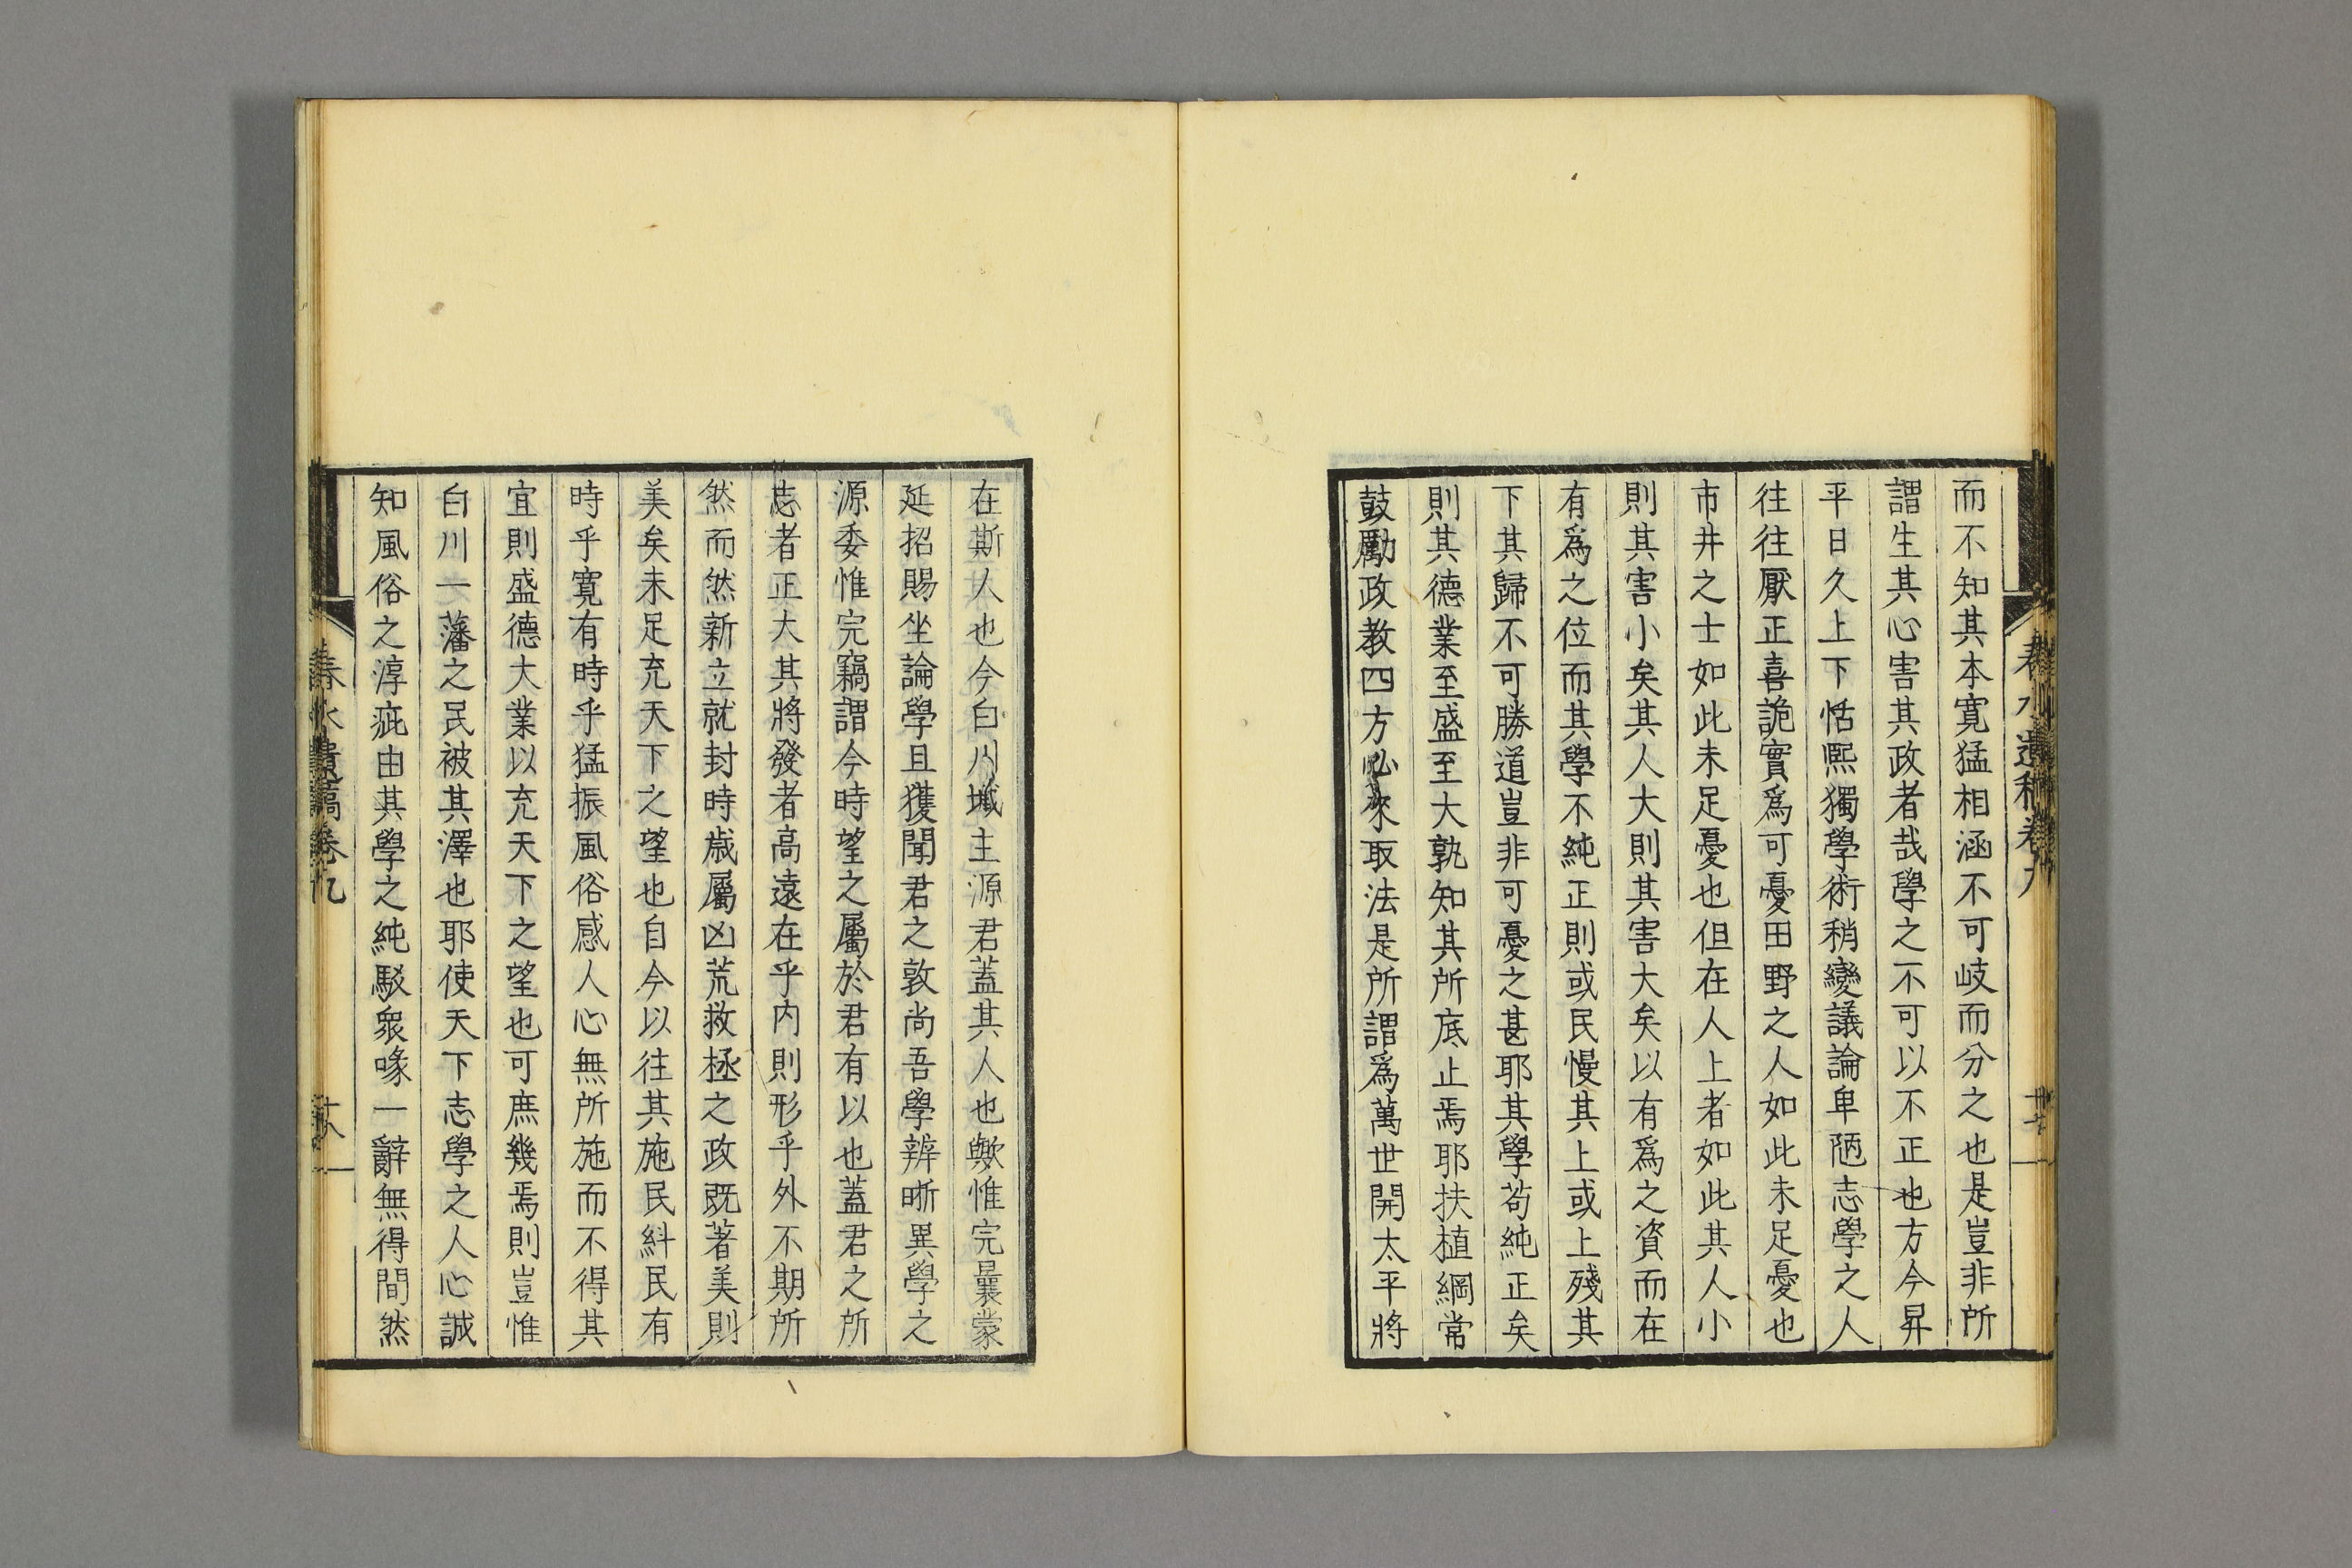 而不知其本寛猛相涵不可岐而分之也是豈非所
謂生其心害其政者哉學之不可以不正也方今昇
平日久上下恬熈獨學術稍變議論卑陋志學之人
往往厭正喜詭實爲可憂田野之人如此未足憂也
市井之士如此未足憂也但在人上者如此其人小
則其害小矣其人大則其害大矣以有爲之資而在
有爲之位而其學不純正則或民慢其上或上殘其
下其歸不可勝道豈非可憂之甚耶其學苟純正矣
則其德業至盛至大孰知其所底止焉耶扶植綱常
鼓勵政教四方必來取法是所謂爲萬世開太平將
在斯人也今白川城主源君蓋其人也歟惟完曩蒙
延招賜坐論學且獲聞君之敦尚吾學辨晣異學之
源委惟完竊謂今時望之屬於君有以也蓋君之所
志者正大其將發者高遠在乎内則形乎外不期所
然而然新立就封時歳屬凶荒救拯之政既著美則
美矣未足充天下之望也自今以往其施民糾民有
時乎寛有時乎猛振風俗感人心無所施而不得其
宜則盛德大業以充天下之望也可庶幾焉則豈惟
白川一藩之民被其澤也耶使天下志學之人心誠
知風俗之淳疵由其學之純駁衆喙一辭無得間然
春水遺稿卷九
十八